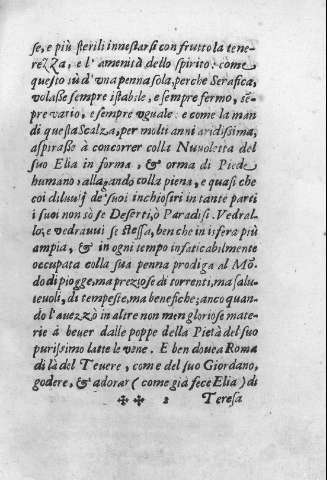 se, e più sterili innestarsi con frutto la tene-
rezza, e l'amenità dello spirito: come
questo sù d'vna penna sola, perche Serafica,
volasse sempre istabile, e sempre fermo, sẽ-
pre vario, e sempre vguale: e come la man
di questa Scalza, per molti anni aridissima,
aspirasse à concorrer colla Nuuoletta del
suo Elia in forma, & orma di Piede
humano: allagando colla piena, e quasi che
coi diluuij de' suoi inchiostri in tante parti
i suoi non sò se Deserti, ò Paradisi. Vedral-
lo, e vedrauui se stessa, ben che in isfera più
ampia, & in ogni tempo infaticabilmente
occupata colla sua penna prodiga al Mõ-
do di piogge, ma preziose di torrenti, ma salu-
teuoli, di tempeste, ma benefiche; anco quan-
do l'auezzò in altre non men gloriose mate-
rie à beuer dalle poppe della Pietà del suo
purissimo latte le vene. E ben douea Roma
di là del Teuere, come del suo Giordano,
godere, & adorar (come già fece Elia) di
✠ ✠ 2 Teresa